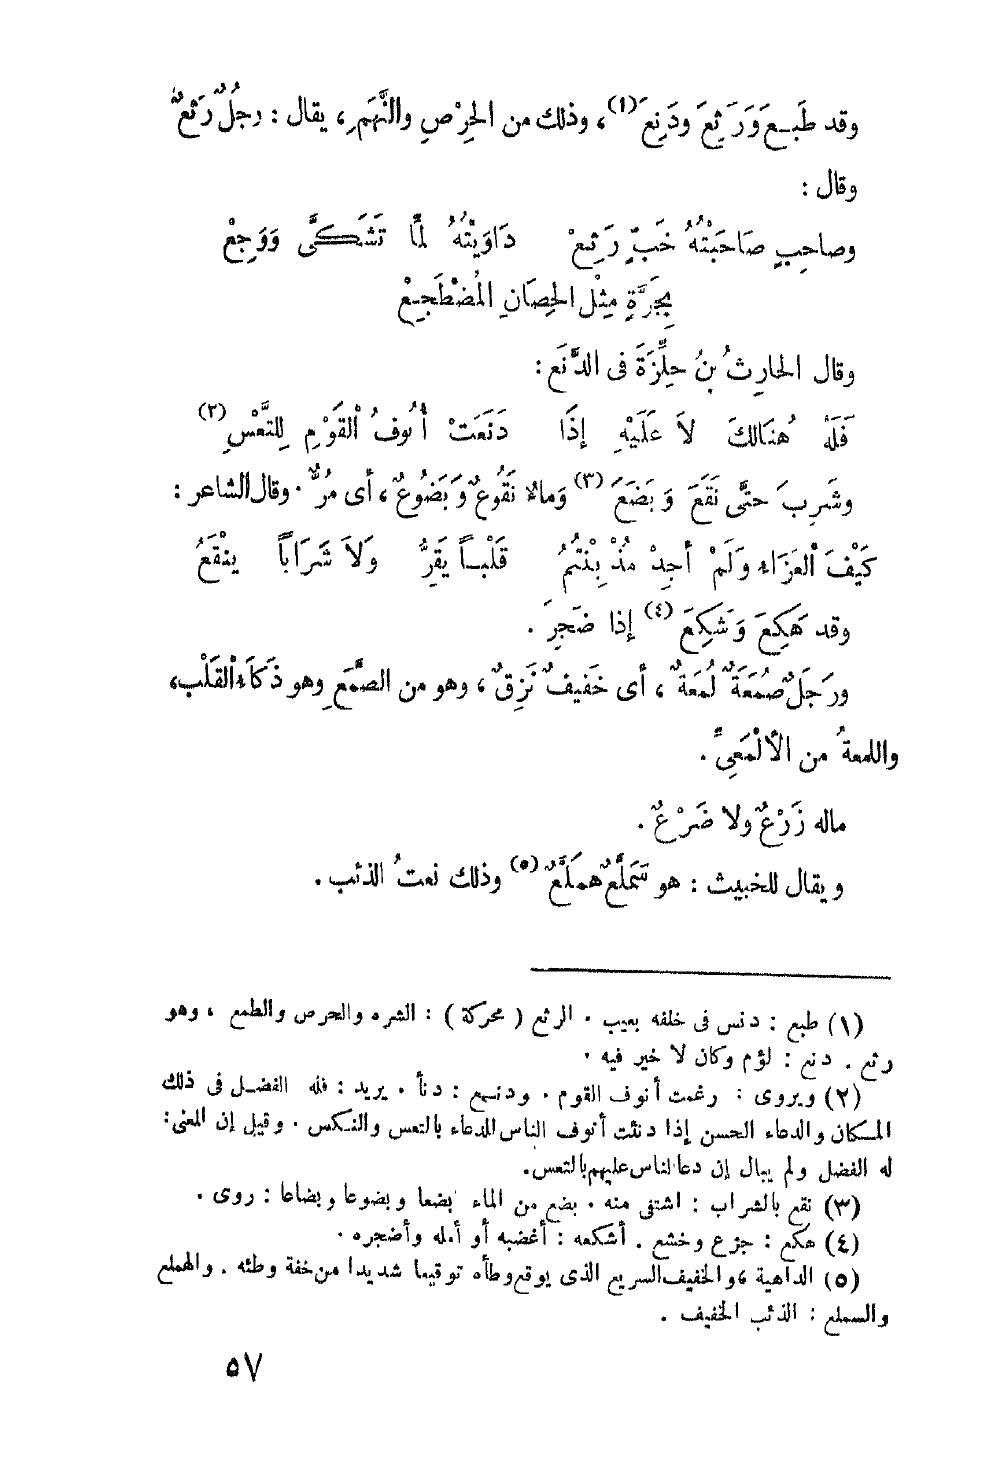 وقد طَبِعَ وَرَثِعَ ودَنِعَ (١) ، وذلك من الحِرْصِ والنَّهَمِ ، يقال : رجُلٌ رَثِعٌ
وقال :
وصاحِبٍ صَاحَبْتُهُ خَبٍّ رَثِعْ دَاوَيْتُهُ لمَّا تَشَكَّى وَوَجِعْ
بِجَرَّةٍ مِثْلِ الحِصَانِ المُضْطَجِعْ
وقال الحارِثُ بنُ حلِّزَةَ فى الدَّنَع :
فَلَهُ هُنَالكَ لاَ عَلَيْهِ إذَا دَنَعَتْ أُنوفُ القَوْمِ لِلتَّعْسِ (٢)
وشَرِبَ حتَّى نَقَعَ وَبَضَعَ (٣) وَماءٌ نَقُوعٌ وَبَضُوعٌ ، أى مُرٌّ . وقال الشاعر :
كَيْفَ العَزَاء وَلَمْ أجِدْ مُذْ بِنْتُمُ قَلْبـاً يَقِرُّ وَلاَ شَرَاباً ينْقَعُ
وقد هَكِعَ وَشَكِعَ (٤) إذا ضَجِرَ .
ورَجَلٌ صُمَعَةٌ لُمَعَةٌ ، أى خَفيفٌ نَزِقٌ ، وهو من الصَّمَعِ وهو ذَكَاَء القَلْب ،
واللمعةُ من الألْمَعِىِّ .
ماله زَرْعٌ ولا ضَرْعٌ .
ويقال للخبيث : هو سَمَلَّعٌ هَمَلَّعٌ (٥) وذلك نعتُ الذئب .
(١) طبع : دنس فى خلقه بعيب . الرثع ( محركة ) : الشره والحرص والطمع ، وهو
رثع . دنع : لؤم وكان لا خير فيه .
(٢) ويروى : رغمت أنوف القوم . ودنـع : دنأ . يريد : فله الفضـل فى ذلك
المـكان والدعاء الحسن إذا دنئت أنوف الناس للدعاء بالتعس والنـكس . وقيل إن المعنى :
له الفضل ولم يبال إن دعا الناس عليهم بالتعس .
(٣) نقع بالشراب : اشتفى منه . بضع من الماء بضعا وبضوعا وبضاعا : روى .
(٤) هكع : جزع وخشع . أشكعه : أغضبه أو أمله وأضجره .
(٥) الداهية ، والخفيف السريع الذى يوقع وطأه توقيعا شديدا من خفة وطئه . والهملع
والسملع : الذئب الخفيف .
٥٧